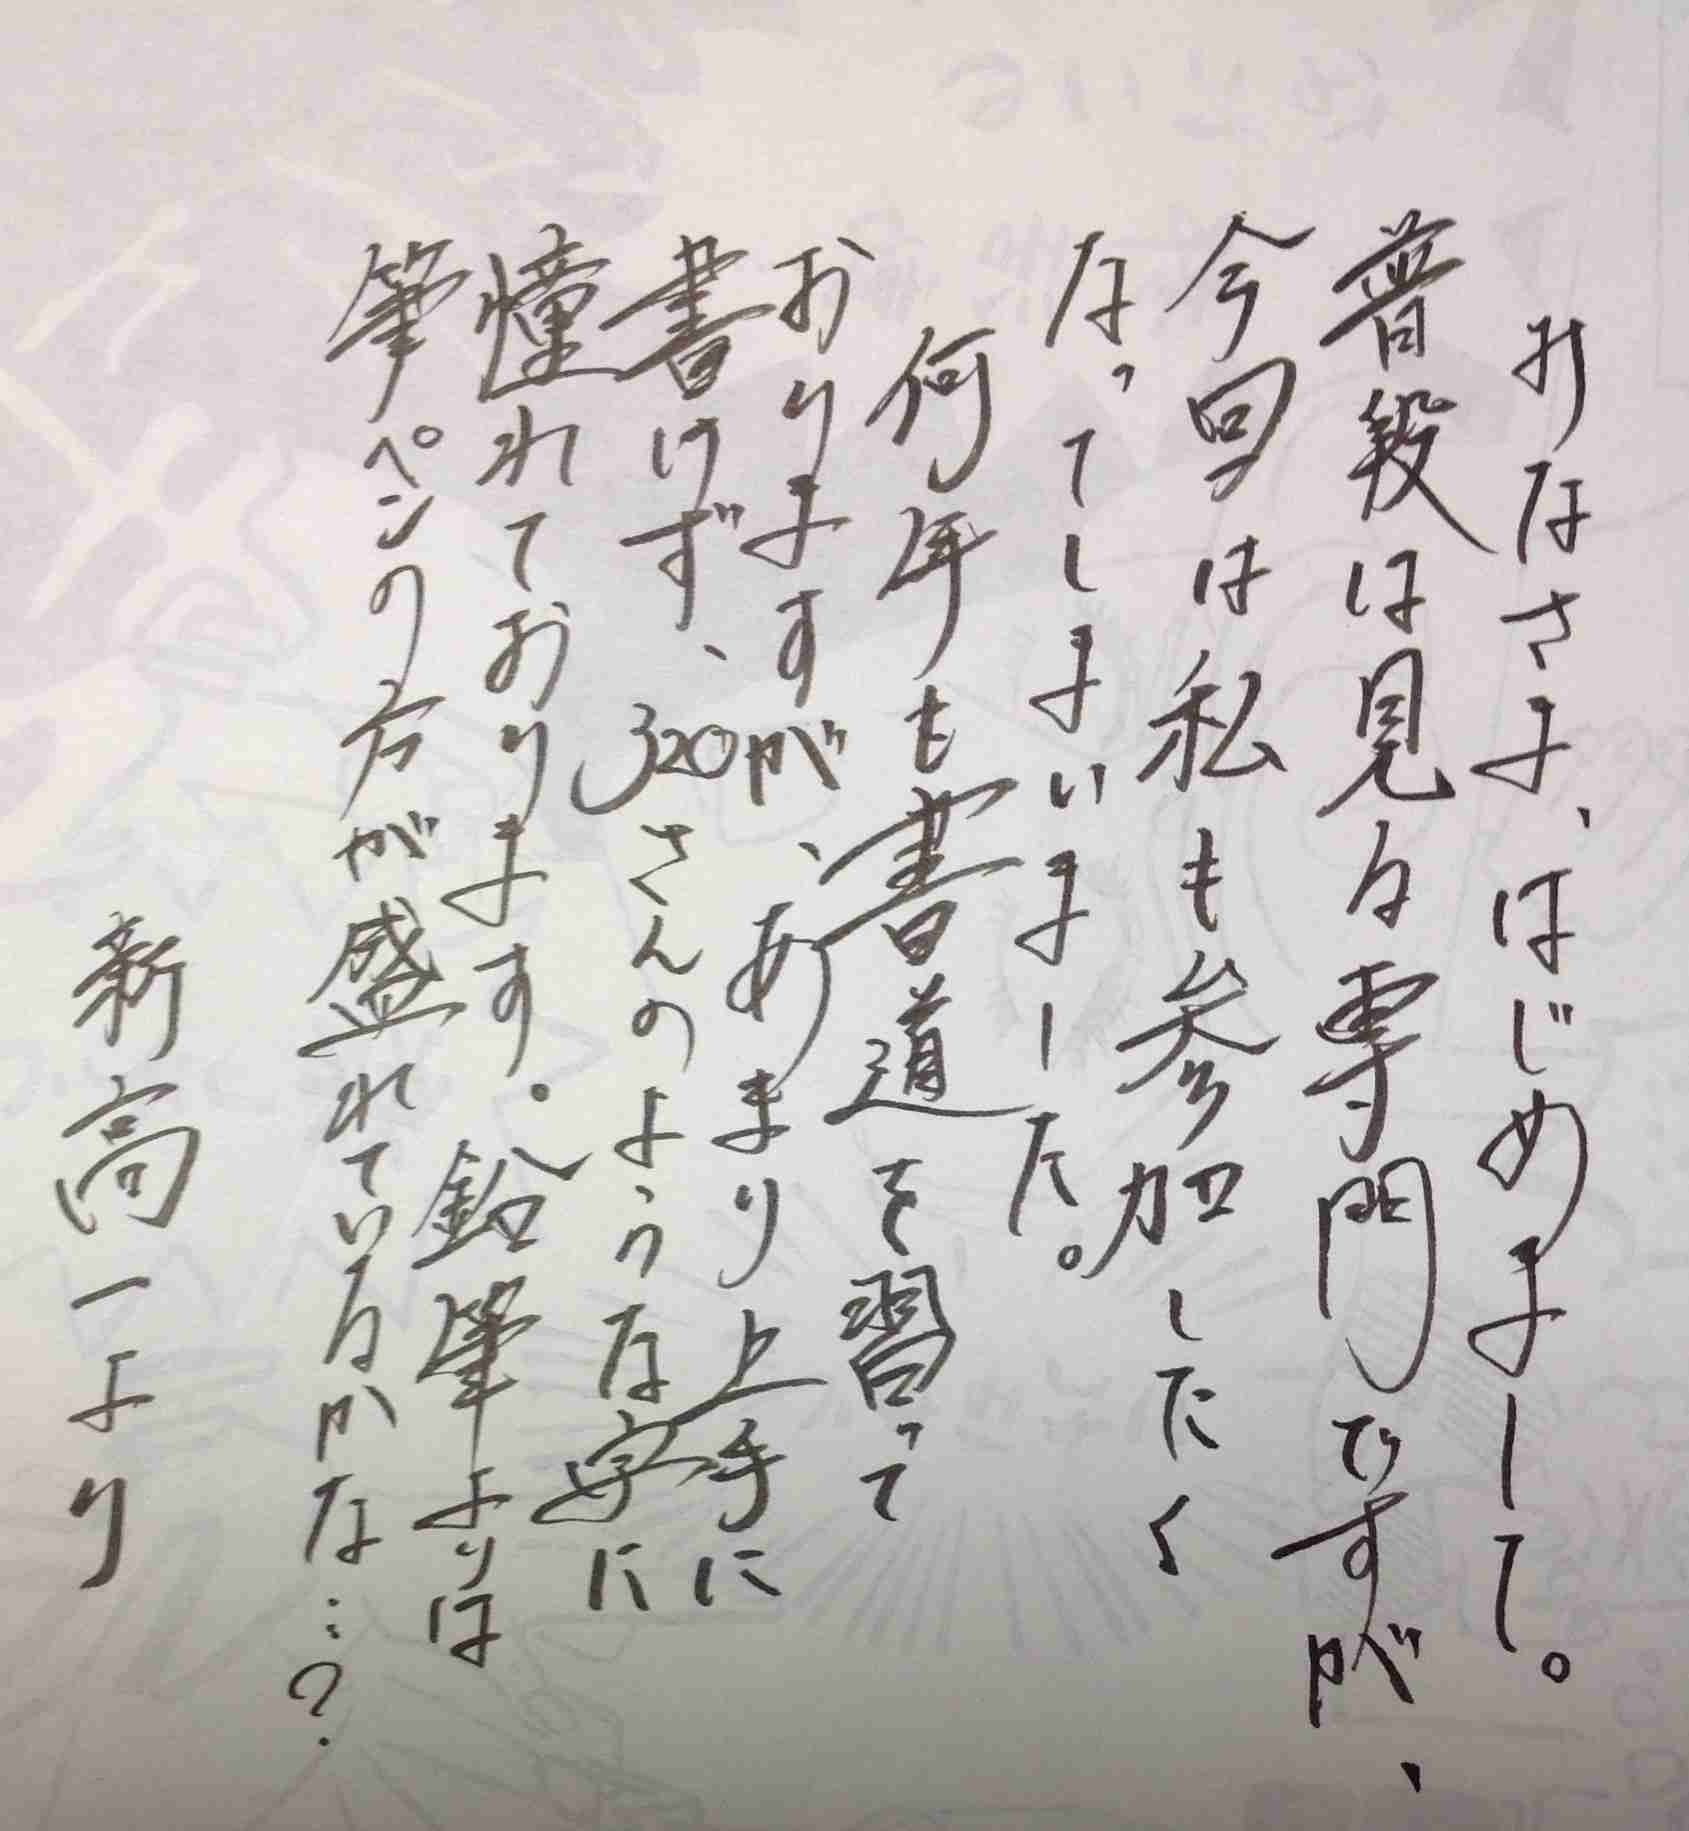 みなさま、はじめまして。
普段は見る専門ですが、
今回は私も参加したく
なってしまいました。
何年も書道を習って
おりますが、あまり上手に
書けず、320さんのような字に
憧れております。鉛筆よりは
筆ペンの方が盛れているかな…?
新高一より